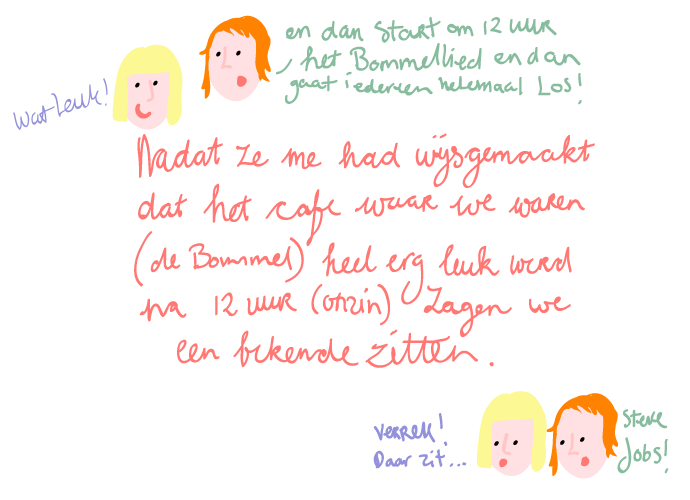 en dan start om 12 uur
het Bommellied en dan
gaat iedereen helemaal Los!
Wat Leuk!
Nadat ze me had wijsgemaakt
dat het cafe waar we waren
(de Bommel) heel erg leuk werd
na 12 uur (onzin) zagen we
een bekende zitten.
VERREK!
Daar zit...
Steve
Jobs!